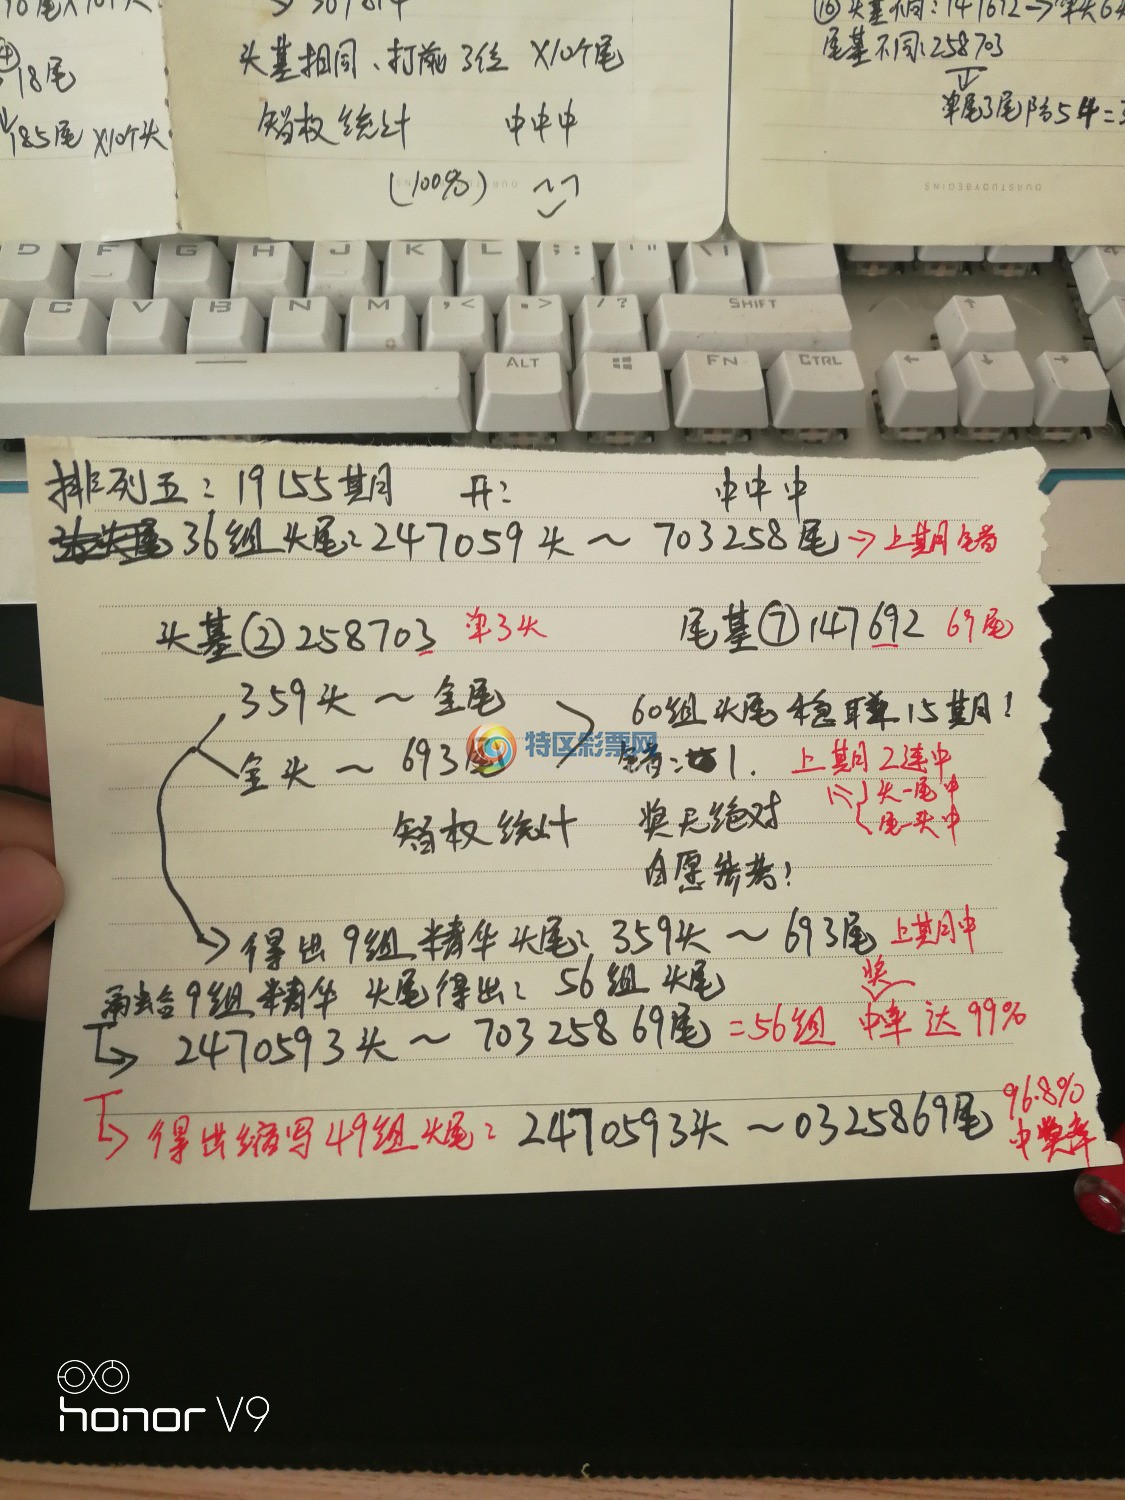 18尾
185尾 X10个头
头基相同、打前3位 X10个尾
智权统计 中中中
(100%)
尾基不同:258703
单尾3尾防5
OURSTUDYBEGINS
D F G H J K L
C V B N M SHIFT
ALT FN CTRL
排列五:19155期 开: 中中中
36组头尾:247059头~703258尾→上期错
头基②258703 单3头 尾基⑦147692 69尾
359头~全尾 60组头尾稳赚15期!
全头~693尾 错:1. 上期2连中
特区彩票网
头一尾中
尾一头中
智权统计 奖无绝对
自愿参考!
得出9组精华头尾:359头~693尾 上期中
两者合9组精华 头尾得出:56组头尾 奖
2470593头~70325869尾=56组 中率达99%
得出缩写49组头尾:2470593头~0325869尾 96.8%
中奖率
honor V9